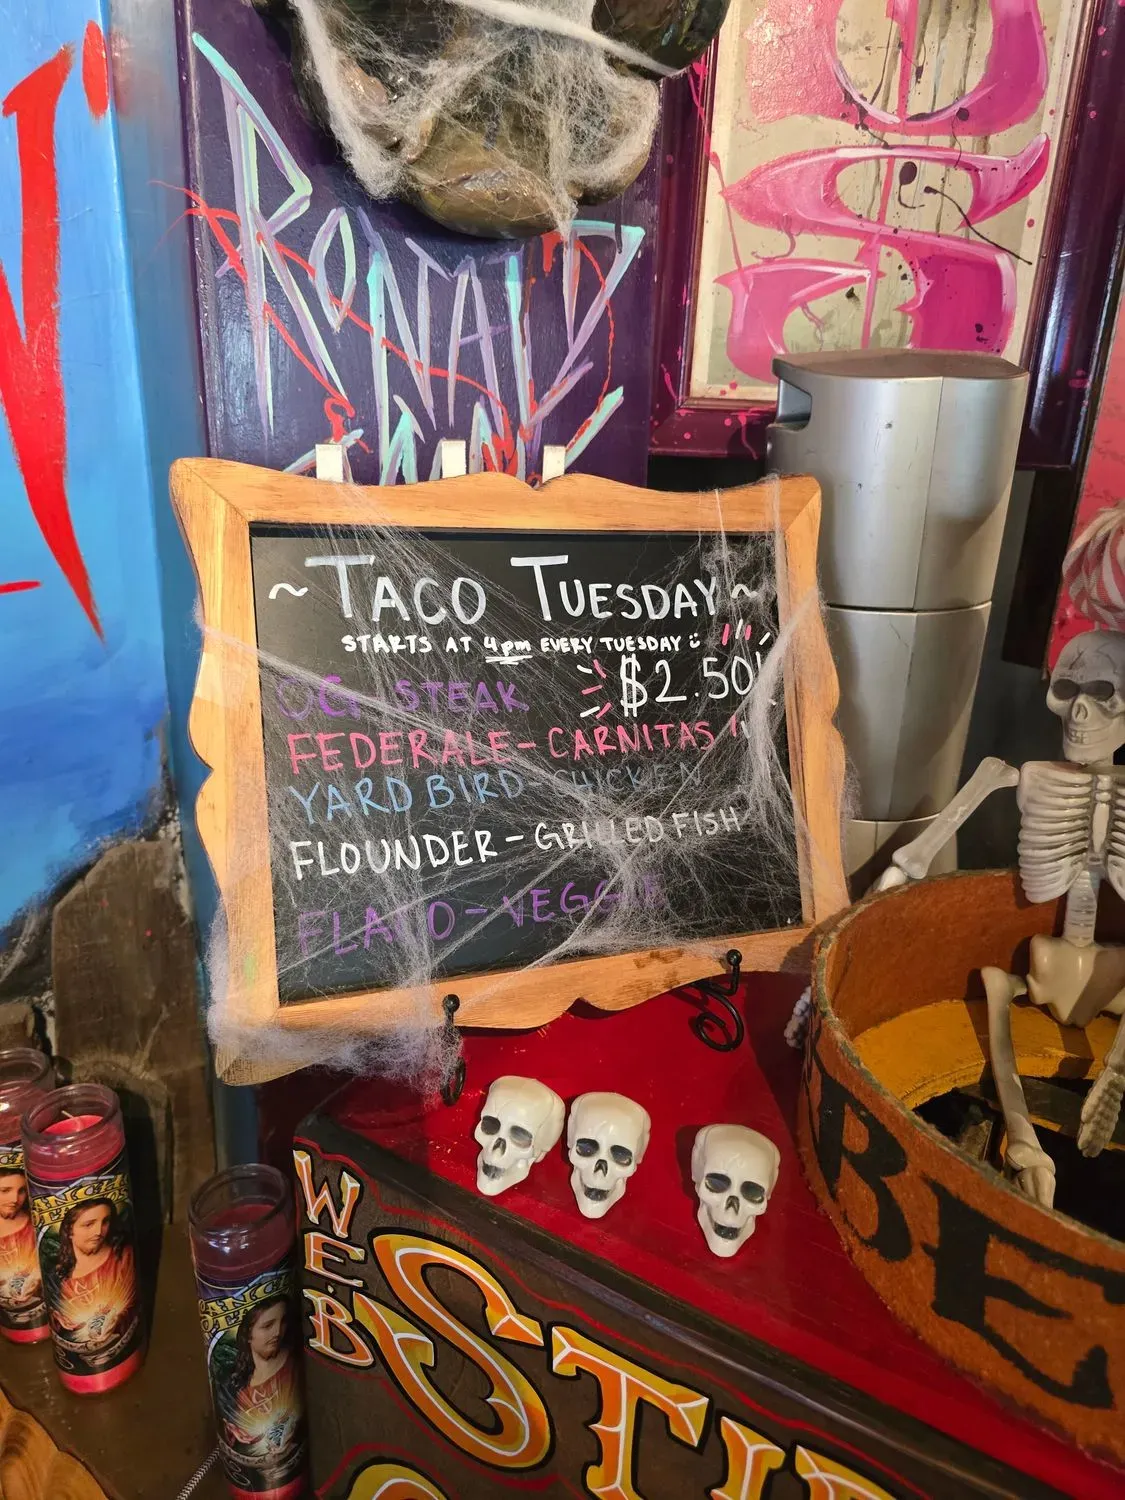 RONALD
~ TACO TUESDAY ~
STARTS AT 4pm EVERY TUESDAY
$2.50!
OG - STEAK
FEDERALE - CARNITAS
YARD BIRD - CHICKEN
FLOUNDER - GRILLED FISH
FLACO - VEGGIE
WEB
BE